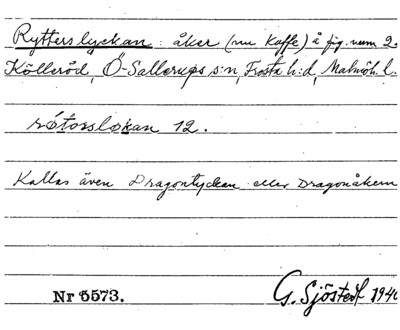 Rytterslyckan: åker (nu Kaffe) å fig. num 2.
Kölleröd, Ö-Sallerups s:n, Frosta h:d, Malmöh. l.
12.
Kallas även Dragontyckan eller Dragonåkern
Nr 5573. G. Sjöstedt 1940